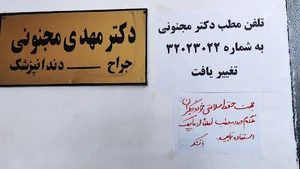 دکتر مهدی مجنونی
جراح ــــــ دندانپزشک
تلفن مطب دکتر مجنونی
به شماره ۳۲۰۲۳۰۲۲
تغییر یافت
جهت حفظ سلامتی خود و دیگران
هنگام ورود به مطب لطفا از ماسک
استفاده نمایید. با تشکر